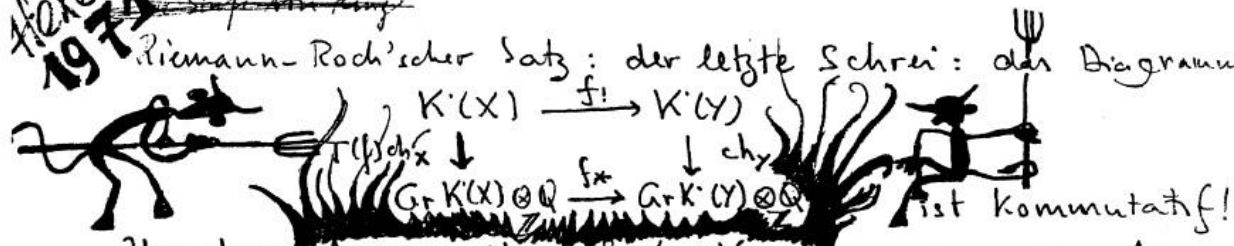 1971
Riemann-Roch'scher Satz: der letzte Schrei: das Diagramm
K˙(X) f! → K˙(Y)
T(f)ch_X ↓ ↓ ch_Y
Gr K˙(X) ⊗_Z Q f* → Gr K˙(Y) ⊗_Z Q
ist kommutatif!